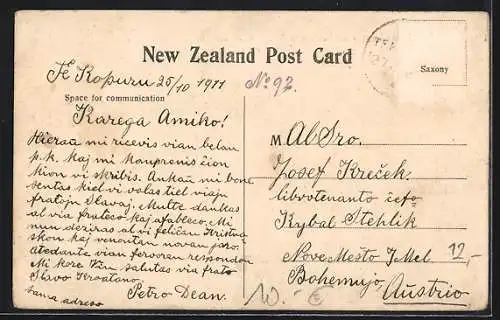 New Zealand Post Card
Te Kopuru 25/10 1911
No 92.
Saxony
Space for communication
Karega Amiko!
Hieraŭ mi ricevis vian belan
p.k. kaj mi komprenis ĉion
kion vi skribis. Ankaŭ mi bone
sentas kiel vi volas kiel viaj
fratojn Slavaj. Multe dankas
al via frateco kaj afableco. Mi
nun deziras al vi feliĉan Kristna
skon kaj venontan novan jaro.
Atedante vian fervoran respondon
Mi kore Vin salutas via frato
Slavo Kroatano
Petro Dean.
sama adreso
M AlSro.
Josef Kreček
libvotenanto ĉefo
Kybal Stehlik
Nove Mešto
Bohemujo
Austrio
12,-